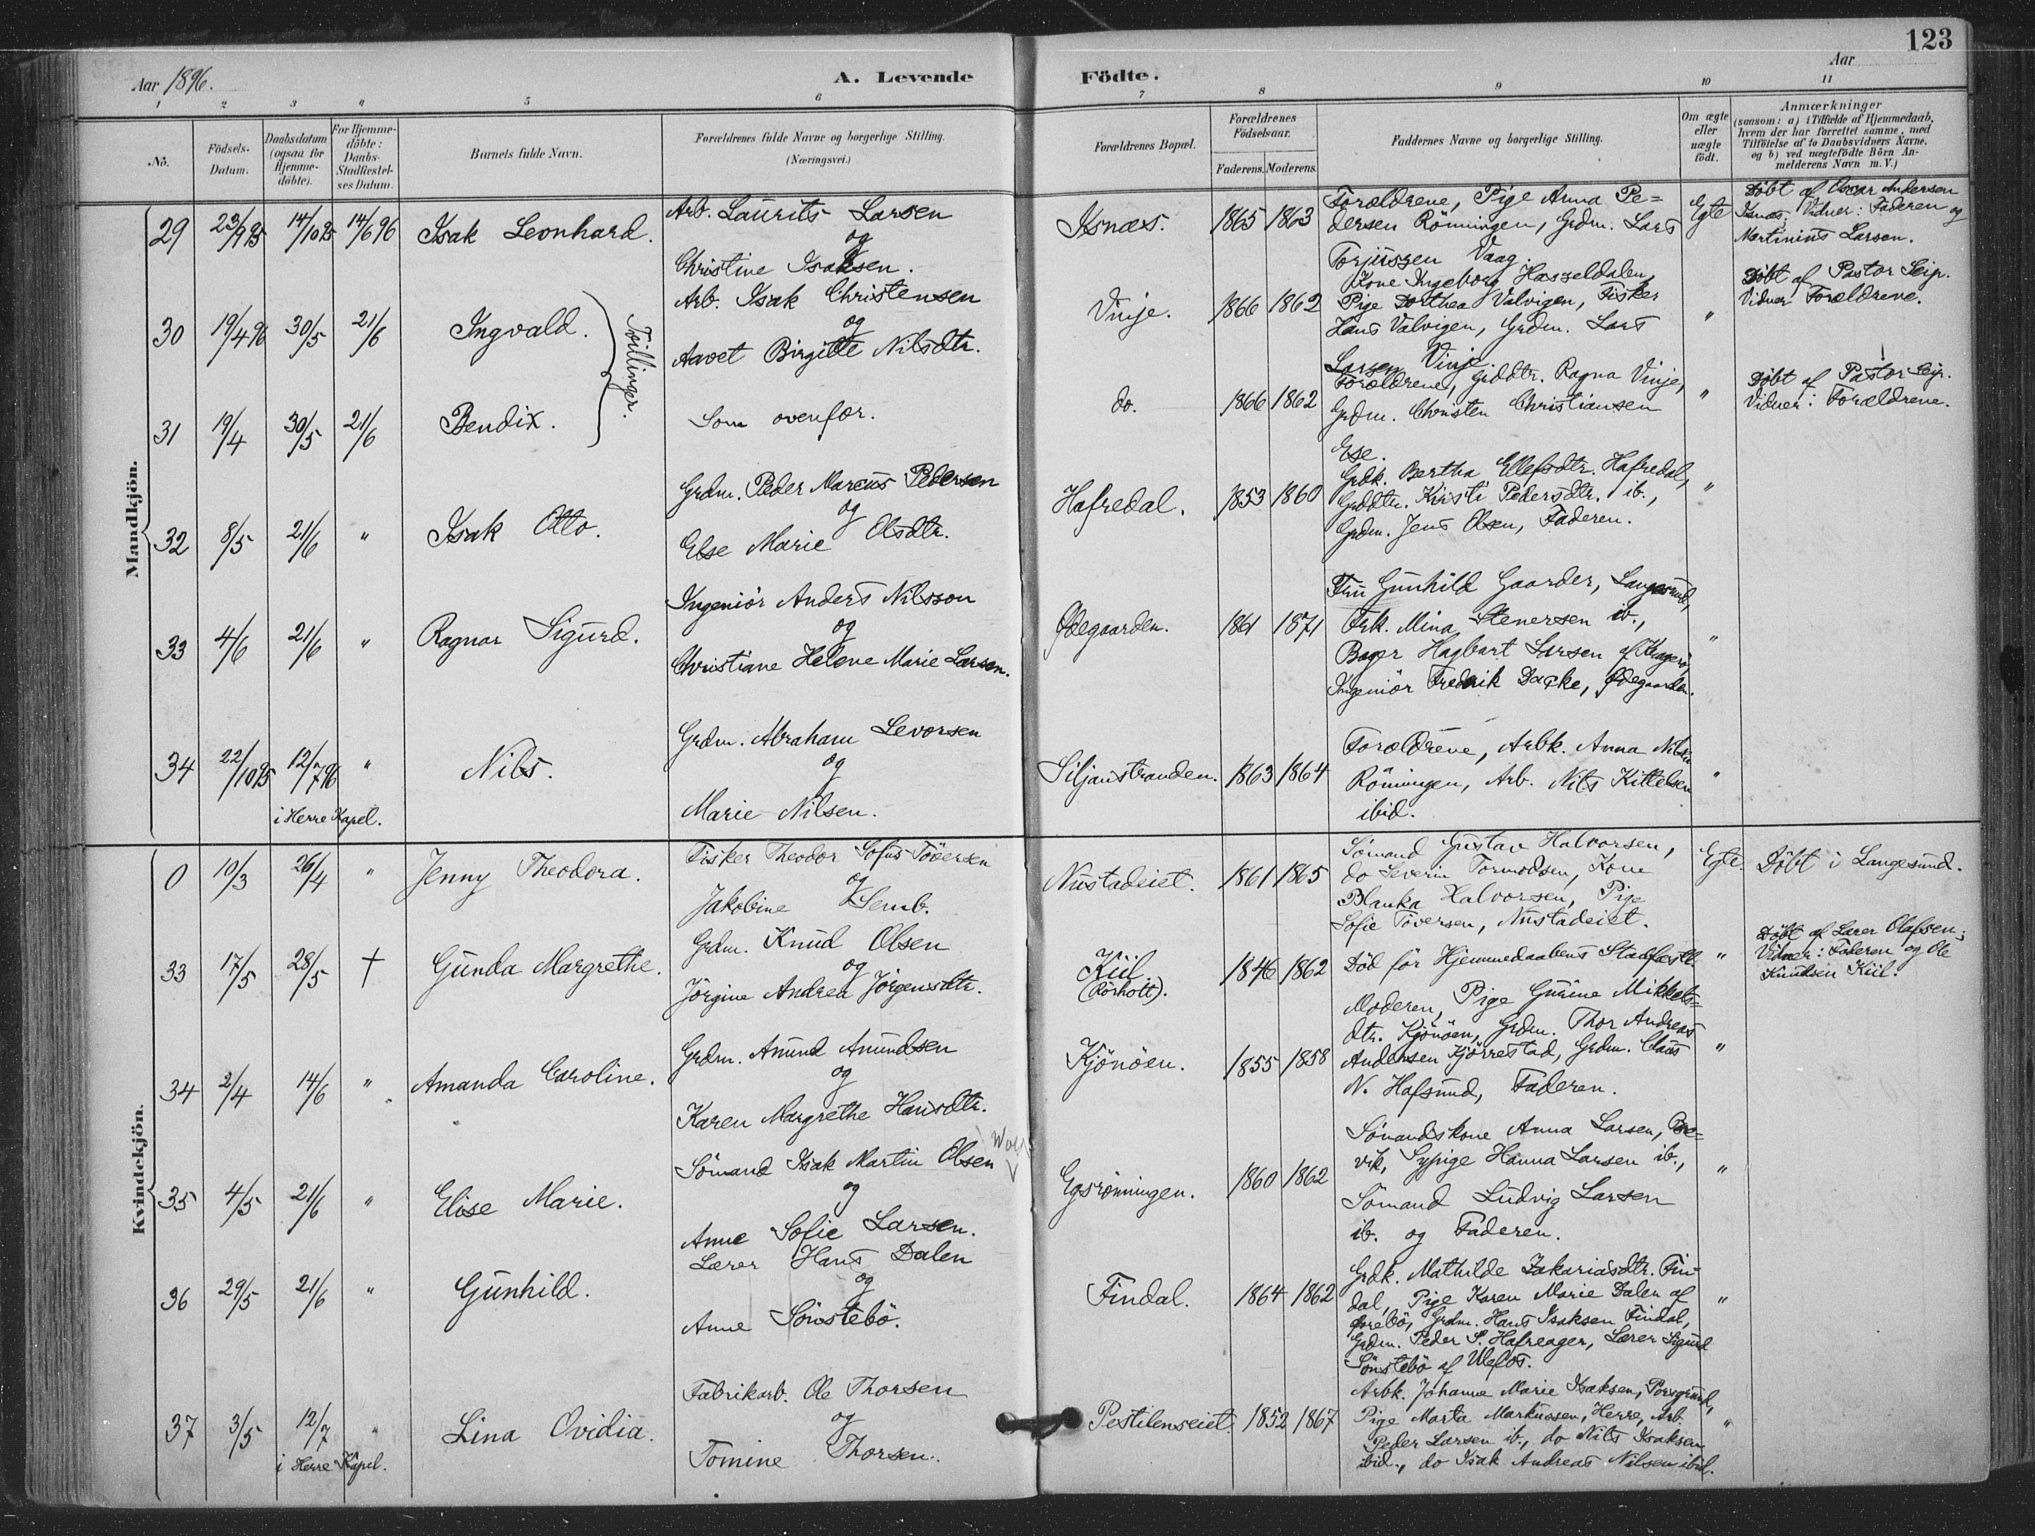 123
Aar 1896.
A. Levende Födte.
Aar
1 2 3 " 5 6 7 8 9 10 11
No.
Födsels-
Datum.
Daabsdatum
(ogsaa for
Hjemme-
döbte).
For Hjemme-
döbte:
Daabs-
Stadfæstel-
ses Datum.
Barnets fulde Navn.
Forældrenes fulde Navne og borgerlige Stilling.
(Næringsvei.)
Forældrenes Bopæl.
Forældrenes
Födselsaar.
Faderens. Moderens.
Faddernes Navne og borgerlige Stilling.
Om ægte
eller
uægte
födt.
Anmærkninger
(saasom: a) i Tilfælde af Hjemmedaab,
hvem der har forrettet samme, med
Tilföielse af to Daabsvidners Navne,
og b) ved uægtefödte Börn An-
melderens Navn m. V.)
Mandkjön.
29 23/9 95 14/10 95 14/6 96 Isak Leonhard.
Arb. Laurits Larsen
og
Christine Isaksen.
Isnæs. 1865 1863
Forældrene, Pige Anna Pe=
dersen Rönningen, Grdm. Lars
Torjussen Vaag.
Egte
Döbt af Oscar Andersen
Isnæs. Vidner: Faderen og
Martinius Larsen.
30 19/4 96 30/5 21/6 Ingvald.
Tvillinger.
Arb. Isak Christensen
og
Aavet Birgitte Nilsdtr.
Vinje. 1866 1862
Kone Ingeborg Hasseldalen,
Pige Dorthea Valvigen, Fisker
Hans Valvigen, Grdm. Lars
Larsen Vinje
"
Döbt af Pastor Seip.
Vidner Forældrene.
31 19/4 30/5 21/6 Bendix.
Som ovenfor.
do. 1866 1862
Forældrene, Grddtr. Ragna Vinje,
Grdm. Christen Christiansen
Ese.
"
Döbt af Pastor Seip.
Vidner: Forældrene.
32 8/5 21/6 " Isak Otto.
Grdm. Peder Marcus Pedersen
og
Else Marie Olsdtr.
Hafredal. 1853 1860
Grdk. Bertha Ellefsdtr. Hafredal,
Grddtr. Kirsti Pedersdtr. ib.,
Grdm. Jens Olsen, Faderen.
"
33 4/6 21/6 " Ragnar Sigurd.
Ingeniör Anders Nilsson
og
Christiane Helene Marie Larsen.
Ødegaarden. 1861 1871
Fru Gunhild Gaarder, Langesund,
Frk. Mina Stenersen ib.,
Bager Hagbart Larsen af Kragerö,
Ingeniör Fredrik Dacke, Ødegaarden.
"
34 22/10 95 12/7 96 " Nils.
i Herre Kapel.
Grdm. Abraham Levorsen
og
Marie Nilsen.
Siljanstranden. 1863 1864
Forældrene, Arbk. Anna Nilsen
Rönningen, Arb. Nils Kittelsen
ibid.
"
Kvindekjön.
0 10/3 26/4 " Jenny Theodora.
Fisker Theodor Sofus Töversen
og
Jakobine Semb.
Nustadeiet. 1861 1865
Sömand Gustav Halvorsen,
do Severin Tormodsen, Kone
Blanka Halvorsen, Pige
Sofie Töversen, Nustadeiet.
Egte.
Döbt i Langesund.
33 17/5 28/5 † Gunda Margrethe.
Grdm. Knud Olsen
og
Jörgine Andrea Jörgensdtr.
Kiil
(Rörholt).
1846 1862
Död för Hjemmedaabens Stadfæstel
"
Döbt af Lærer Olafsen;
Vidner: Faderen og Ole
Knudsen Kiil.
34 2/4 14/6 " Amanda Caroline.
Grdm. Anund Anundsen
og
Karen Margrethe Hansdtr.
Kjönöen. 1855 1858
Moderen, Pige Gurine Mikkels=
dtr. Kjönöen, Grdm. Thor Andreas
Andersen Kjörrestad, Grdm. Claus
N. Hafsund, Faderen.
"
35 4/5 21/6 " Elise Marie.
Sömand Isak Martin Olsen
og
Anne Sofie Larsen.
Egsrönningen. 1860 1862
Sömandskone Anna Larsen, Bre=
vik, Sypige Hanna Larsen ib.,
Sömand Ludvig Larsen
ib. og Faderen.
"
36 29/5 21/6 " Gunhild.
Lærer Hans Dalen
og
Anne Sönstebö.
Findal. 1864 1862
Grdk. Mathilde Zakariasdtr. Fin-
dal, Pige Karen Marie Dalen af
Grdm. Hans Isaksen Findal,
Grdm. Peder S. Hafreager, Lærer Sigurd
Sönstebö af Ulefos.
"
37 3/5 12/7 " Lina Ovidia.
i Herre Kapel.
Fabrikarb. Ole Thorsen
og
Tomine Thorsen.
Pestilenseiet. 1852 1867
Arbk. Johanne Marie Isaksen, Porsgrund,
Pige Marta Markussen, Herre, Arb.
Peder Larsen ib., do Nils Isaksen
ibid., do Isak Andreas Nilsen ibid.
"